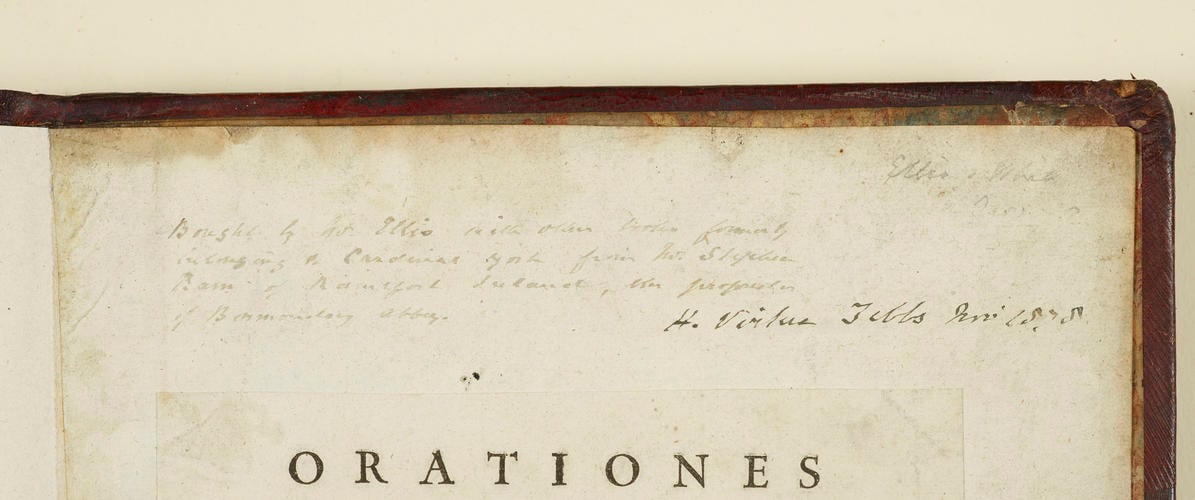 Ellis & White
Bought by Mr. Ellis with other books formerly
belonging to Cardinal York from Mr. Stephen
Ram of Ramsfort Ireland, the proprietor
of Bermondsey Abbey.
H. Virtue Tebbs Nov 1878
ORATIONES